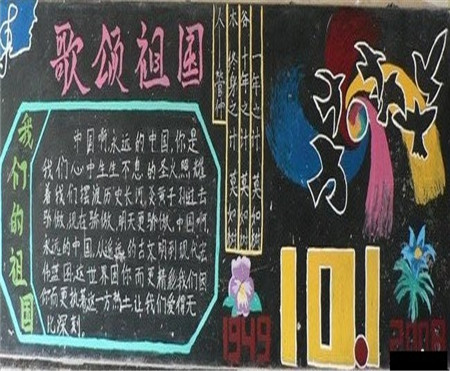 歌颂祖国
一年之计 莫如树
谷 十年之计 莫如树
木 终身之计 莫如树
人 管仲
我们的祖国
中国啊,永远的中国,你是
我们心中生生不息的圣火,照耀
着我们摆渡历史长河,炎黄子孙过去
骄傲,现在骄傲,明天更骄傲,中国啊,
永远的中国,从遥远的古文明到现代宏
伟蓝图,这世界因你而更精彩,我们因
你而更执着,这一方热土让我们爱得无
比深刻
1949
10.1
2008